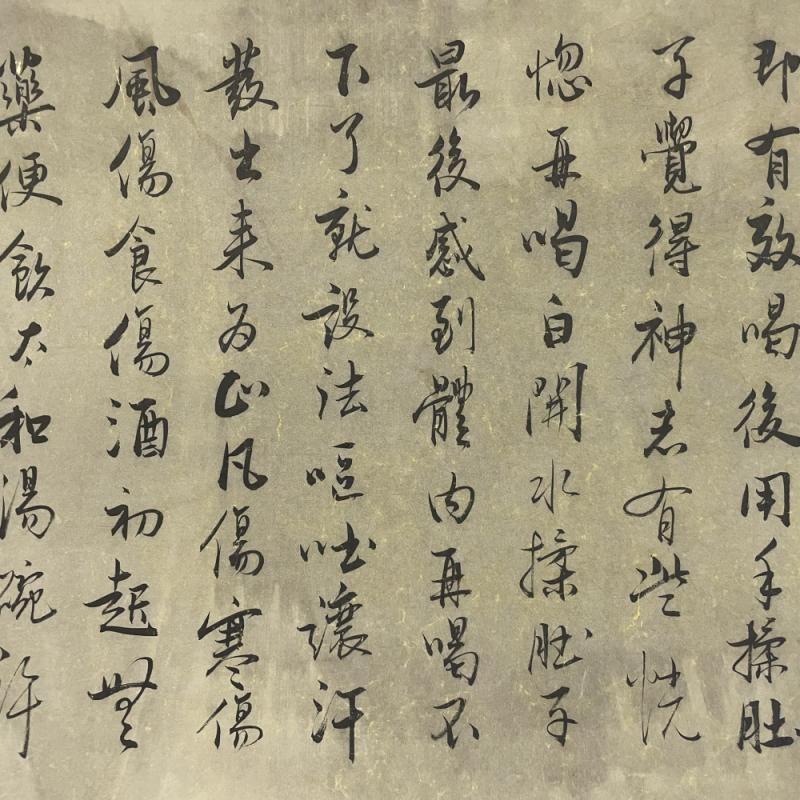 即有效喝後用手揉肚
子覺得神志有些恍
惚再喝白開水揉肚子
最後感到體内再喝不
下了就設法嘔吐讓汗
發出来為止凡傷寒傷
風傷食傷酒初起無
藥便飲太和湯碗許